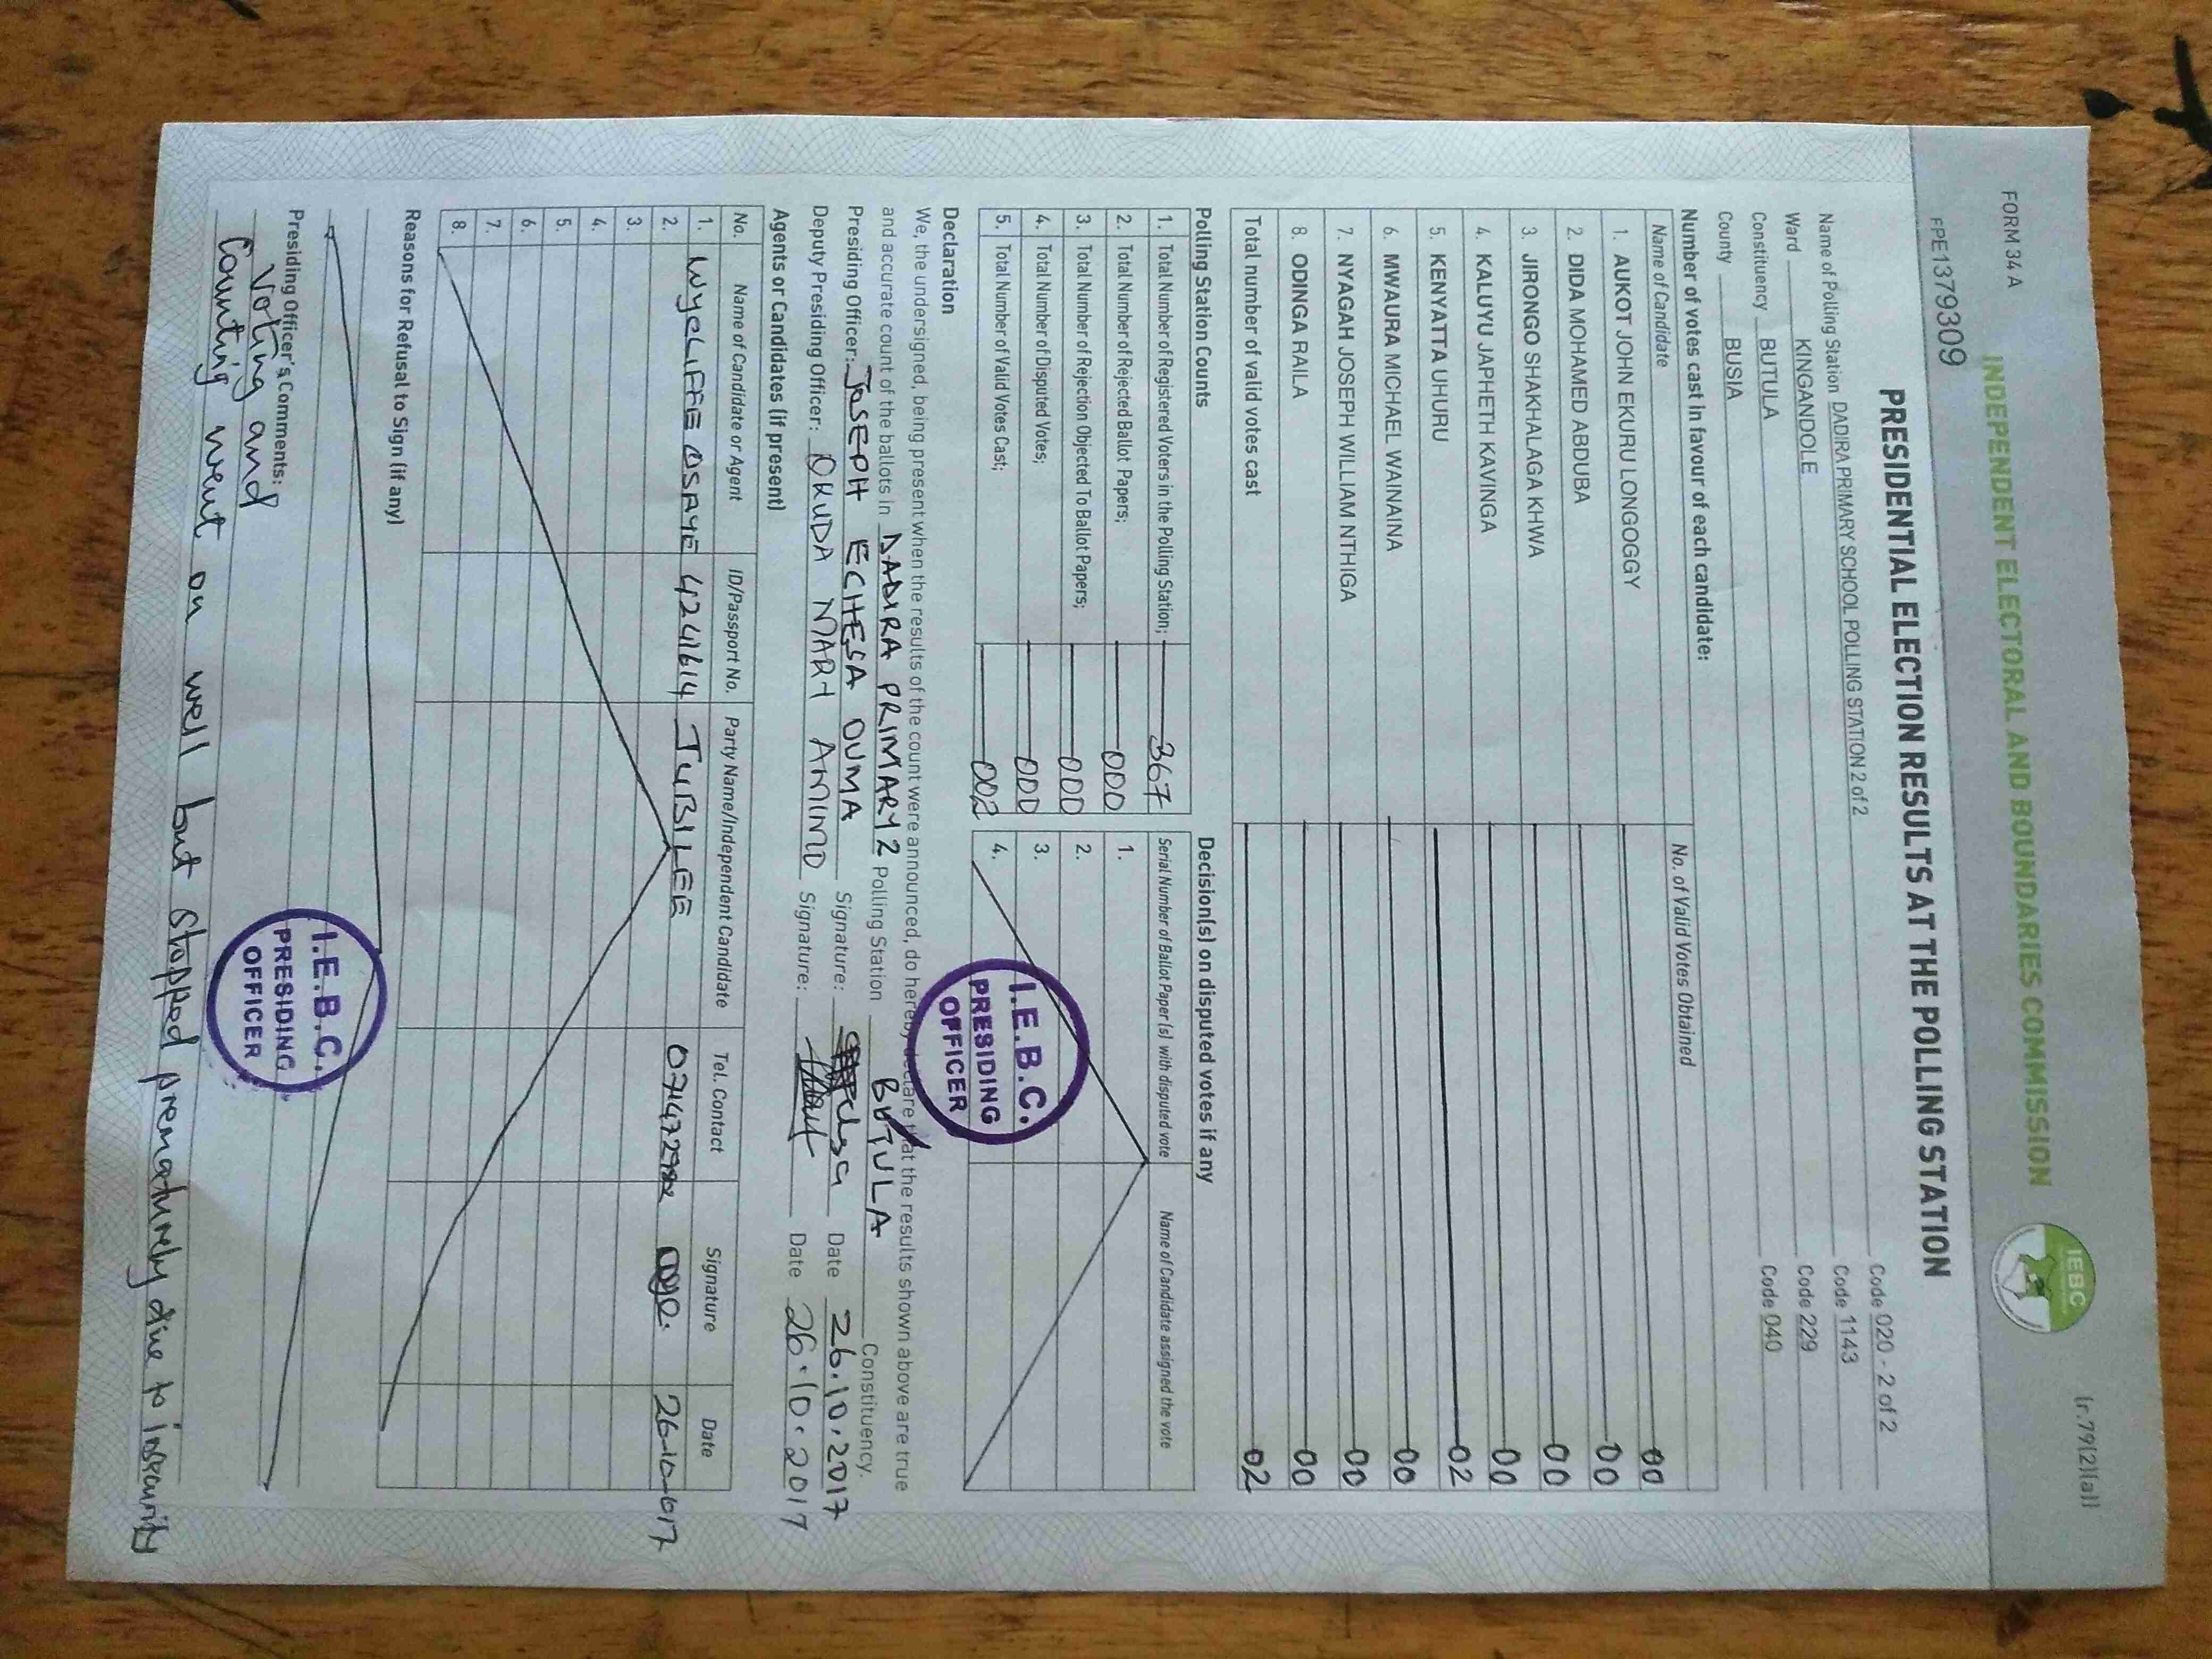 FORM 34 A
(r.79(2)(a))
INDEPENDENT ELECTORAL AND BOUNDARIES COMMISSION
IEBC
FPE1379309
PRESIDENTIAL ELECTION RESULTS AT THE POLLING STATION
Name of Polling Station DADIRA PRIMARY SCHOOL POLLING STATION 2 of 2 Code 020 - 2 of 2
Ward KINGANDOLE Code 1143
Constituency BUTULA Code 229
County BUSIA Code 040
Number of votes cast in favour of each candidate:
Name of Candidate No. of Valid Votes Obtained
1. AUKOT JOHN EKURU LONGOGGY 00
2. DIDA MOHAMED ABDUBA 00
3. JIRONGO SHAKHALAGA KHWA 00
4. KALUYU JAPHETH KAVINGA 00
5. KENYATTA UHURU 02
6. MWAURA MICHAEL WAINAINA 00
7. NYAGAH JOSEPH WILLIAM NTHIGA 00
8. ODINGA RAILA 00
Total number of valid votes cast 02
Polling Station Counts Decision(s) on disputed votes if any
1. Total Number of Registered Voters in the Polling Station; 367
2. Total Number of Rejected Ballot Papers; 000
3. Total Number of Rejection Objected To Ballot Papers; 000
4. Total Number of Disputed Votes; 000
5. Total Number of Valid Votes Cast; 002
Serial Number of Ballot Paper(s) with disputed vote Name of Candidate assigned the vote
1.
2.
3.
4.
I.E.B.C.
PRESIDING
OFFICER
Declaration
We, the undersigned, being present when the results of the count were announced, do hereby declare that the results shown above are true
and accurate count of the ballots in DADIRA PRIMARY 2 Polling Station BUTULA Constituency.
Presiding Officer: JOSEPH ECHESA OUMA Signature: Date 26.10.2017
Deputy Presiding Officer: OKUDA MARY AMIMO Signature: Date 26.10.2017
Agents or Candidates (if present)
No. Name of Candidate or Agent ID/Passport No. Party Name/Independent Candidate Tel. Contact Signature Date
1. WYCLIFFE OSAYE 4241614 JUBILEE
2.
3.
4.
5.
6.
7.
8.
Reasons for Refusal to Sign (if any)
Presiding Officer's Comments:
Voting and
Counting went on well but stopped prematurely due to insecurity
I.E.B.C.
PRESIDING
OFFICER